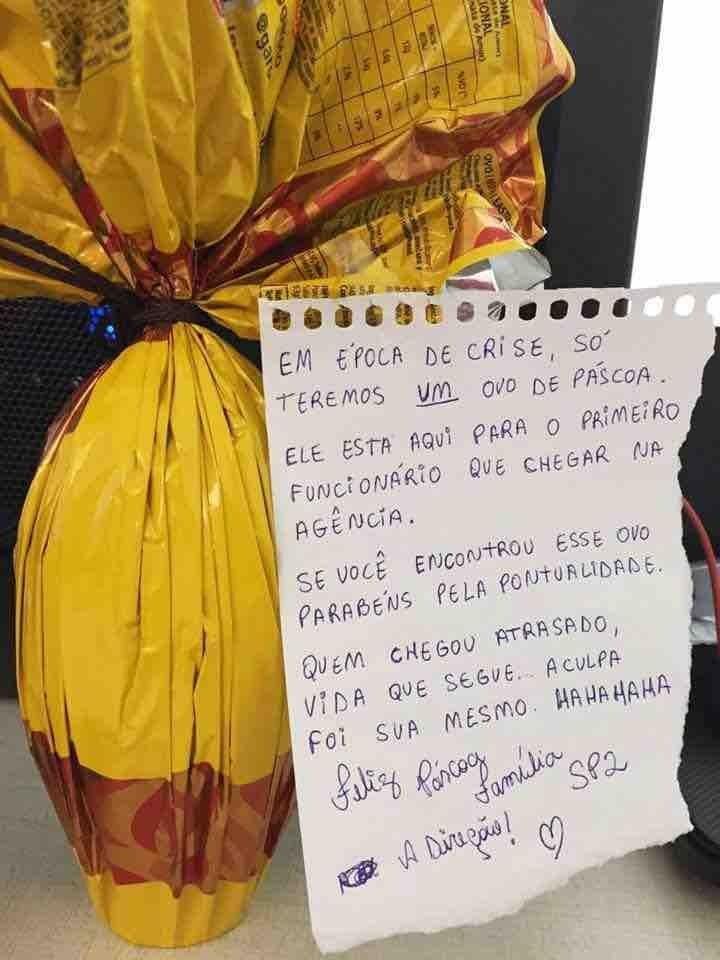 EM ÉPOCA DE CRISE, SÓ
TEREMOS UM OVO DE PÁSCOA.
ELE ESTÁ AQUI PARA O PRIMEIRO
FUNCIONÁRIO QUE CHEGAR NA
AGÊNCIA.
SE VOCÊ ENCONTROU ESSE OVO
PARABÉNS PELA PONTUALIDADE.
QUEM CHEGOU ATRASADO,
VIDA QUE SEGUE... A CULPA
FOI SUA MESMO. HAHAHAHA
Feliz Páscoa Família SP2
A Direção! ♡